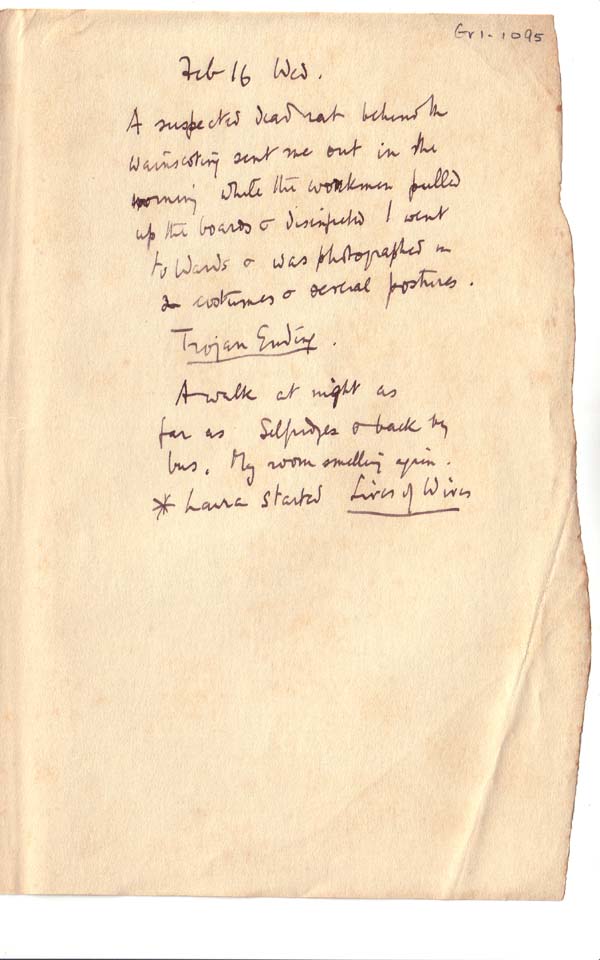 Gr1-1095
Feb 16 Wed.
A suspected dead rat behind the
wainscoting sent me out in the
morning while the workmen pulled
up the boards & disinfected I went
to Wards & was photographed in
2 costumes & several postures.
Trojan Ending.
A walk at night as
far as Selfridges & back by
bus. My room smelling again.
* Laura started Lives of Wives